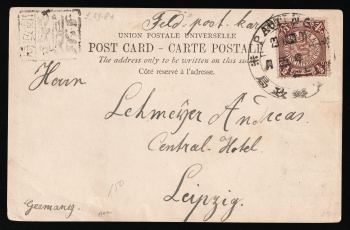 Feld-post. kar
UNION POSTALE UNIVERSELLE
POST CARD - CARTE POSTALE
The address only to be written on this side
Côté reservé à l'adresse.
PAOTINGFU
Herrn
Lehmeyer Andreas
Central-Hotel.
Leipzig.
Germany.
150